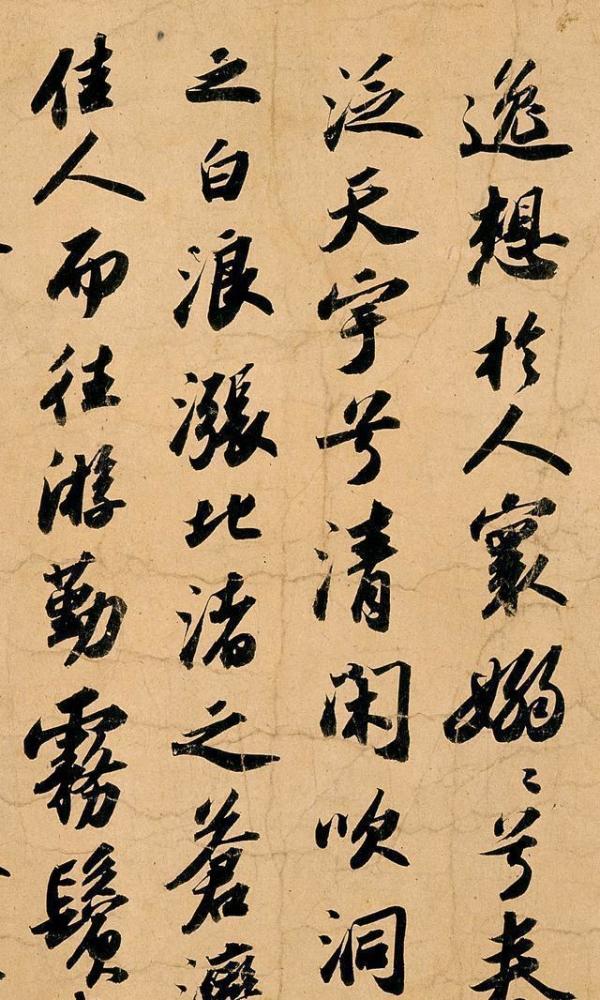 逸想於人寰嫋〻兮春
泛天宇兮清閑吹洞
之白浪漲北渚之蒼
佳人而往游勤霧鬢